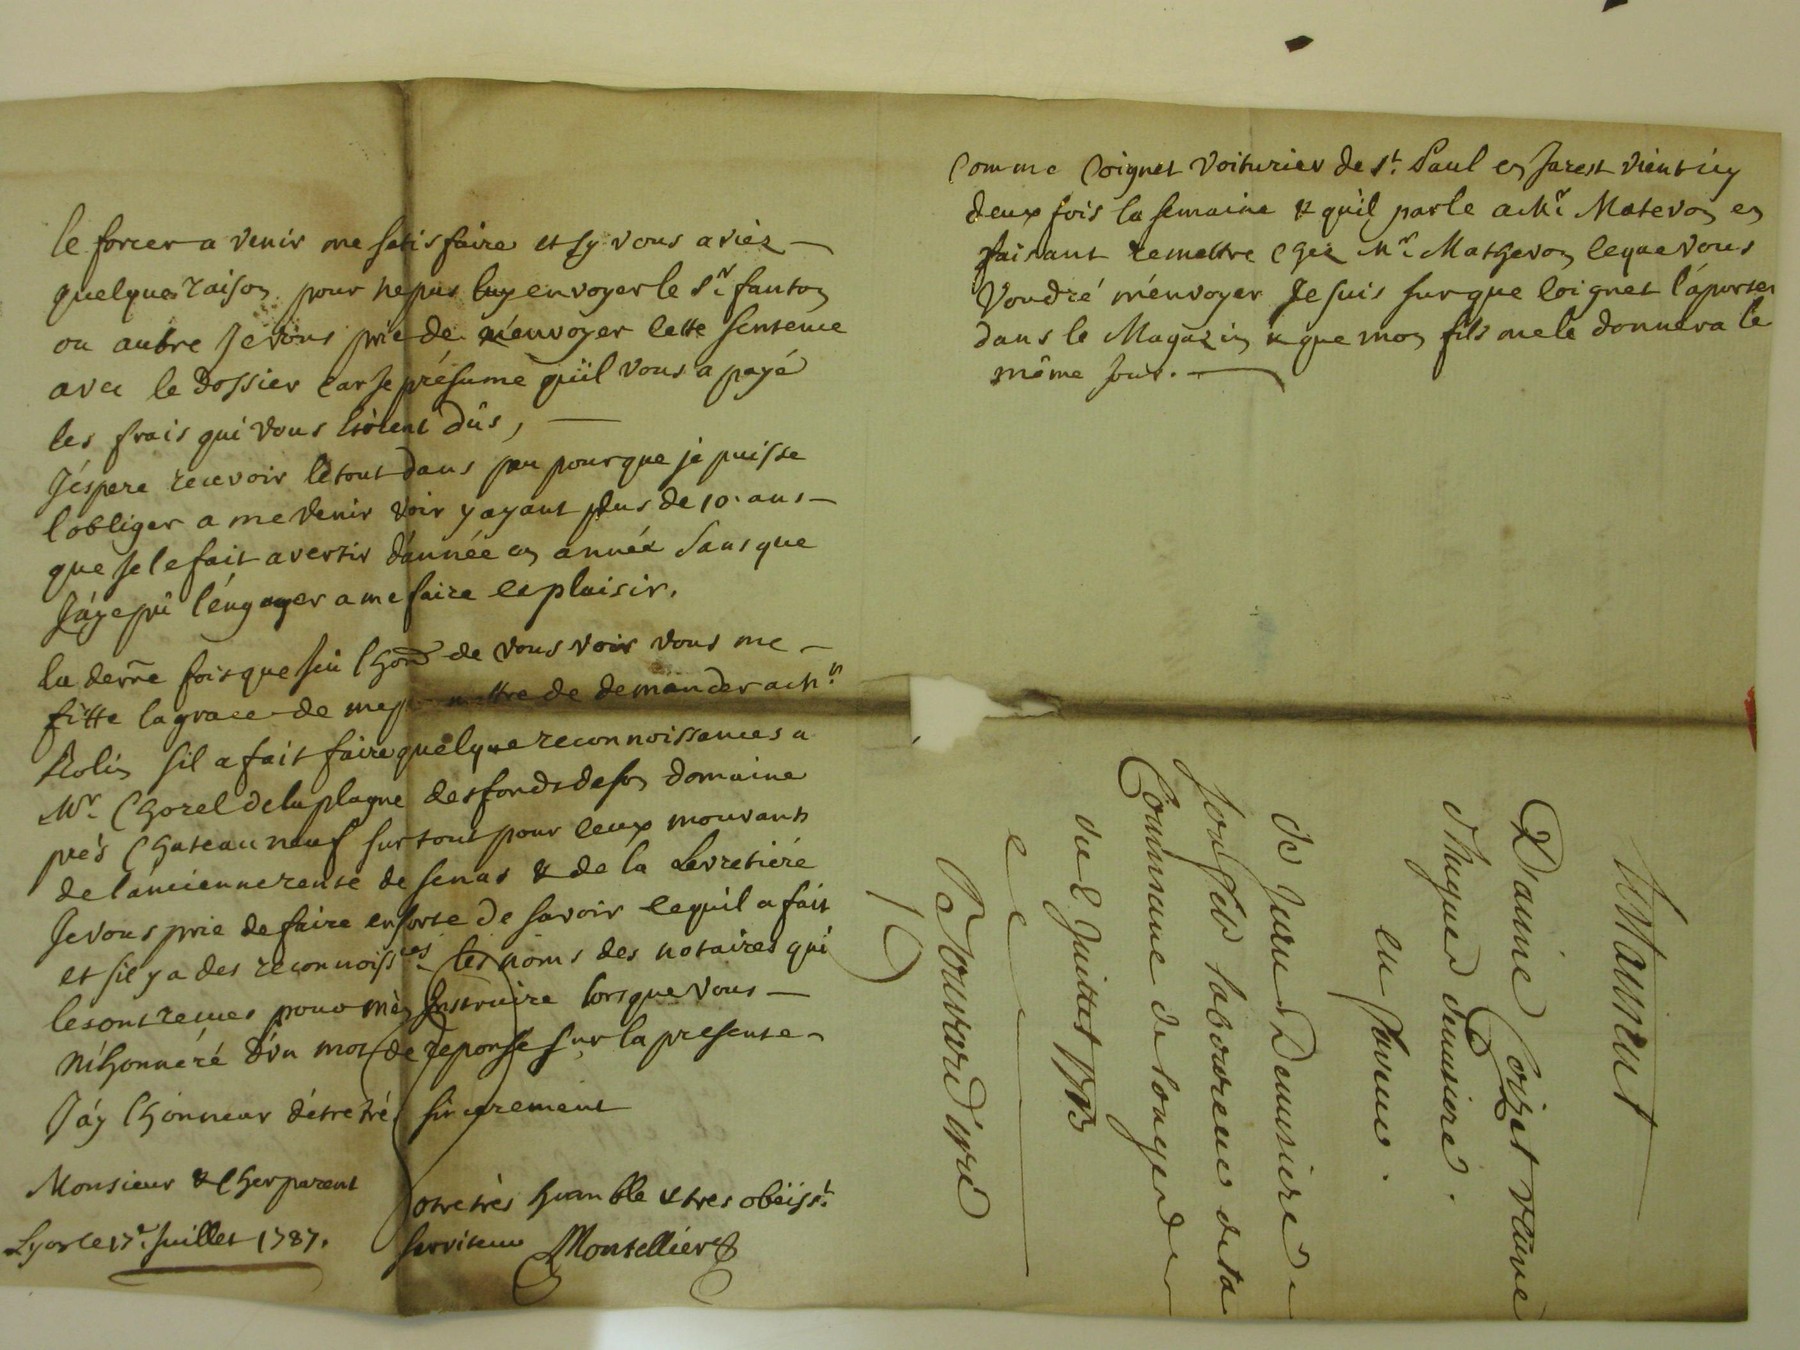 le forcer a venir me satisfaire et sy vous aviez
quelques raison pour ne pas luy envoyer le Sr. fanton
ou autre Je vous prie de m'envoyer cette sentence
avec le Dossier car Je présume qu'il vous a payé
les frais qui vous étoient Dûs,
J'éspere recevoir le tout dans peu pour que je puisse
l'obliger a me venir voir y ayant plus de 10. ans
que Je le fait avertir d'année en année Sans que
J'áye pû l'éngager a me faire ce plaisir.
la derñe fois que J'eu l'hond de vous voir vous me
fitte la grace de me mettre de demander a Mr.
Rolin s'il a fait faire quelque reconnoissances a
Mr. Chorel de laplagne des fonds de son domaine
prés Chateauneuf sur tout pour ceux mouvants
de l'áncienne rente de senas & de la Levretiére
Je vous prie de faire ensorte de savoir ce qu'il a fait
et s'il y a des reconnoissces. les noms des notaires qui
les ont recues pour m'en Instruire lorsque vous
m'honnéré d'un mot de reponse sur la presente
J'áy l'hónneur d'étre trés sincerement
Monsieur & Cher parent
Votre trés humble & tres obéisst.
serviteur Montellier
Lyon le 17e. Juillet 1787.
Comme Coignet voiturier de St. Paul en Jarest vient icy
deux fois la semaine & qu'il parle a Mr. Matevon en
faisant remettre chez Mr. Mathevon ce que vous
voudré m'énvoyer Je suis sur que Coignet l'áportera
dans le Magazin & que mon fils me le donnera le
même Jour.
Dainne Cozet vauve
thuguer demisere.
en faveur.
de Jean Demisiere
son fils laboureur de la
Commune de longes
du 8 Juillet 1793